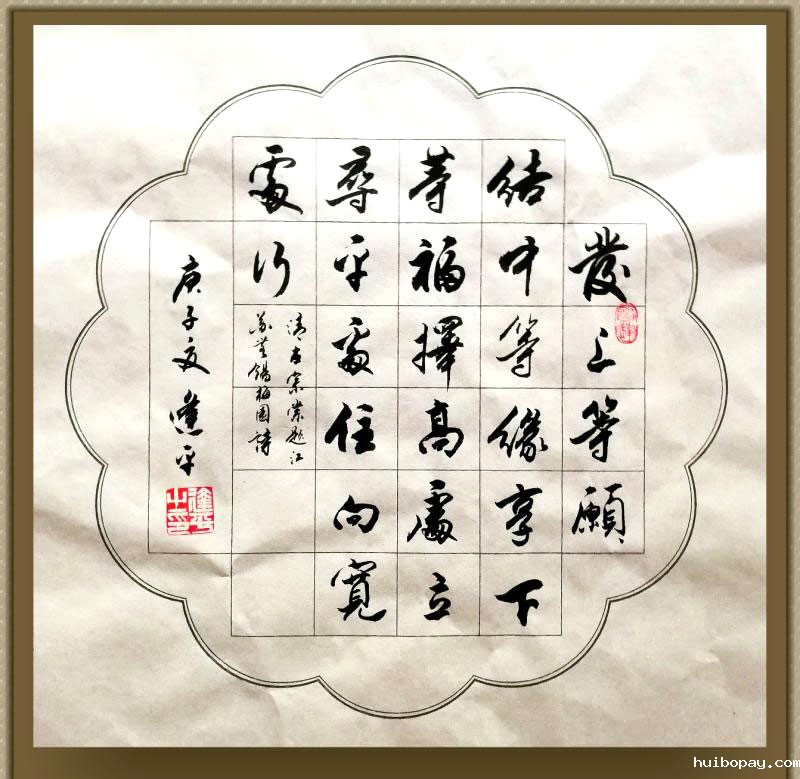 發上等願
結中等緣享下
等福擇高處立
尋平處住向寬
處行
清左宗棠題江
蘇無錫梅園詩
庚子夏 平
huibopay.com